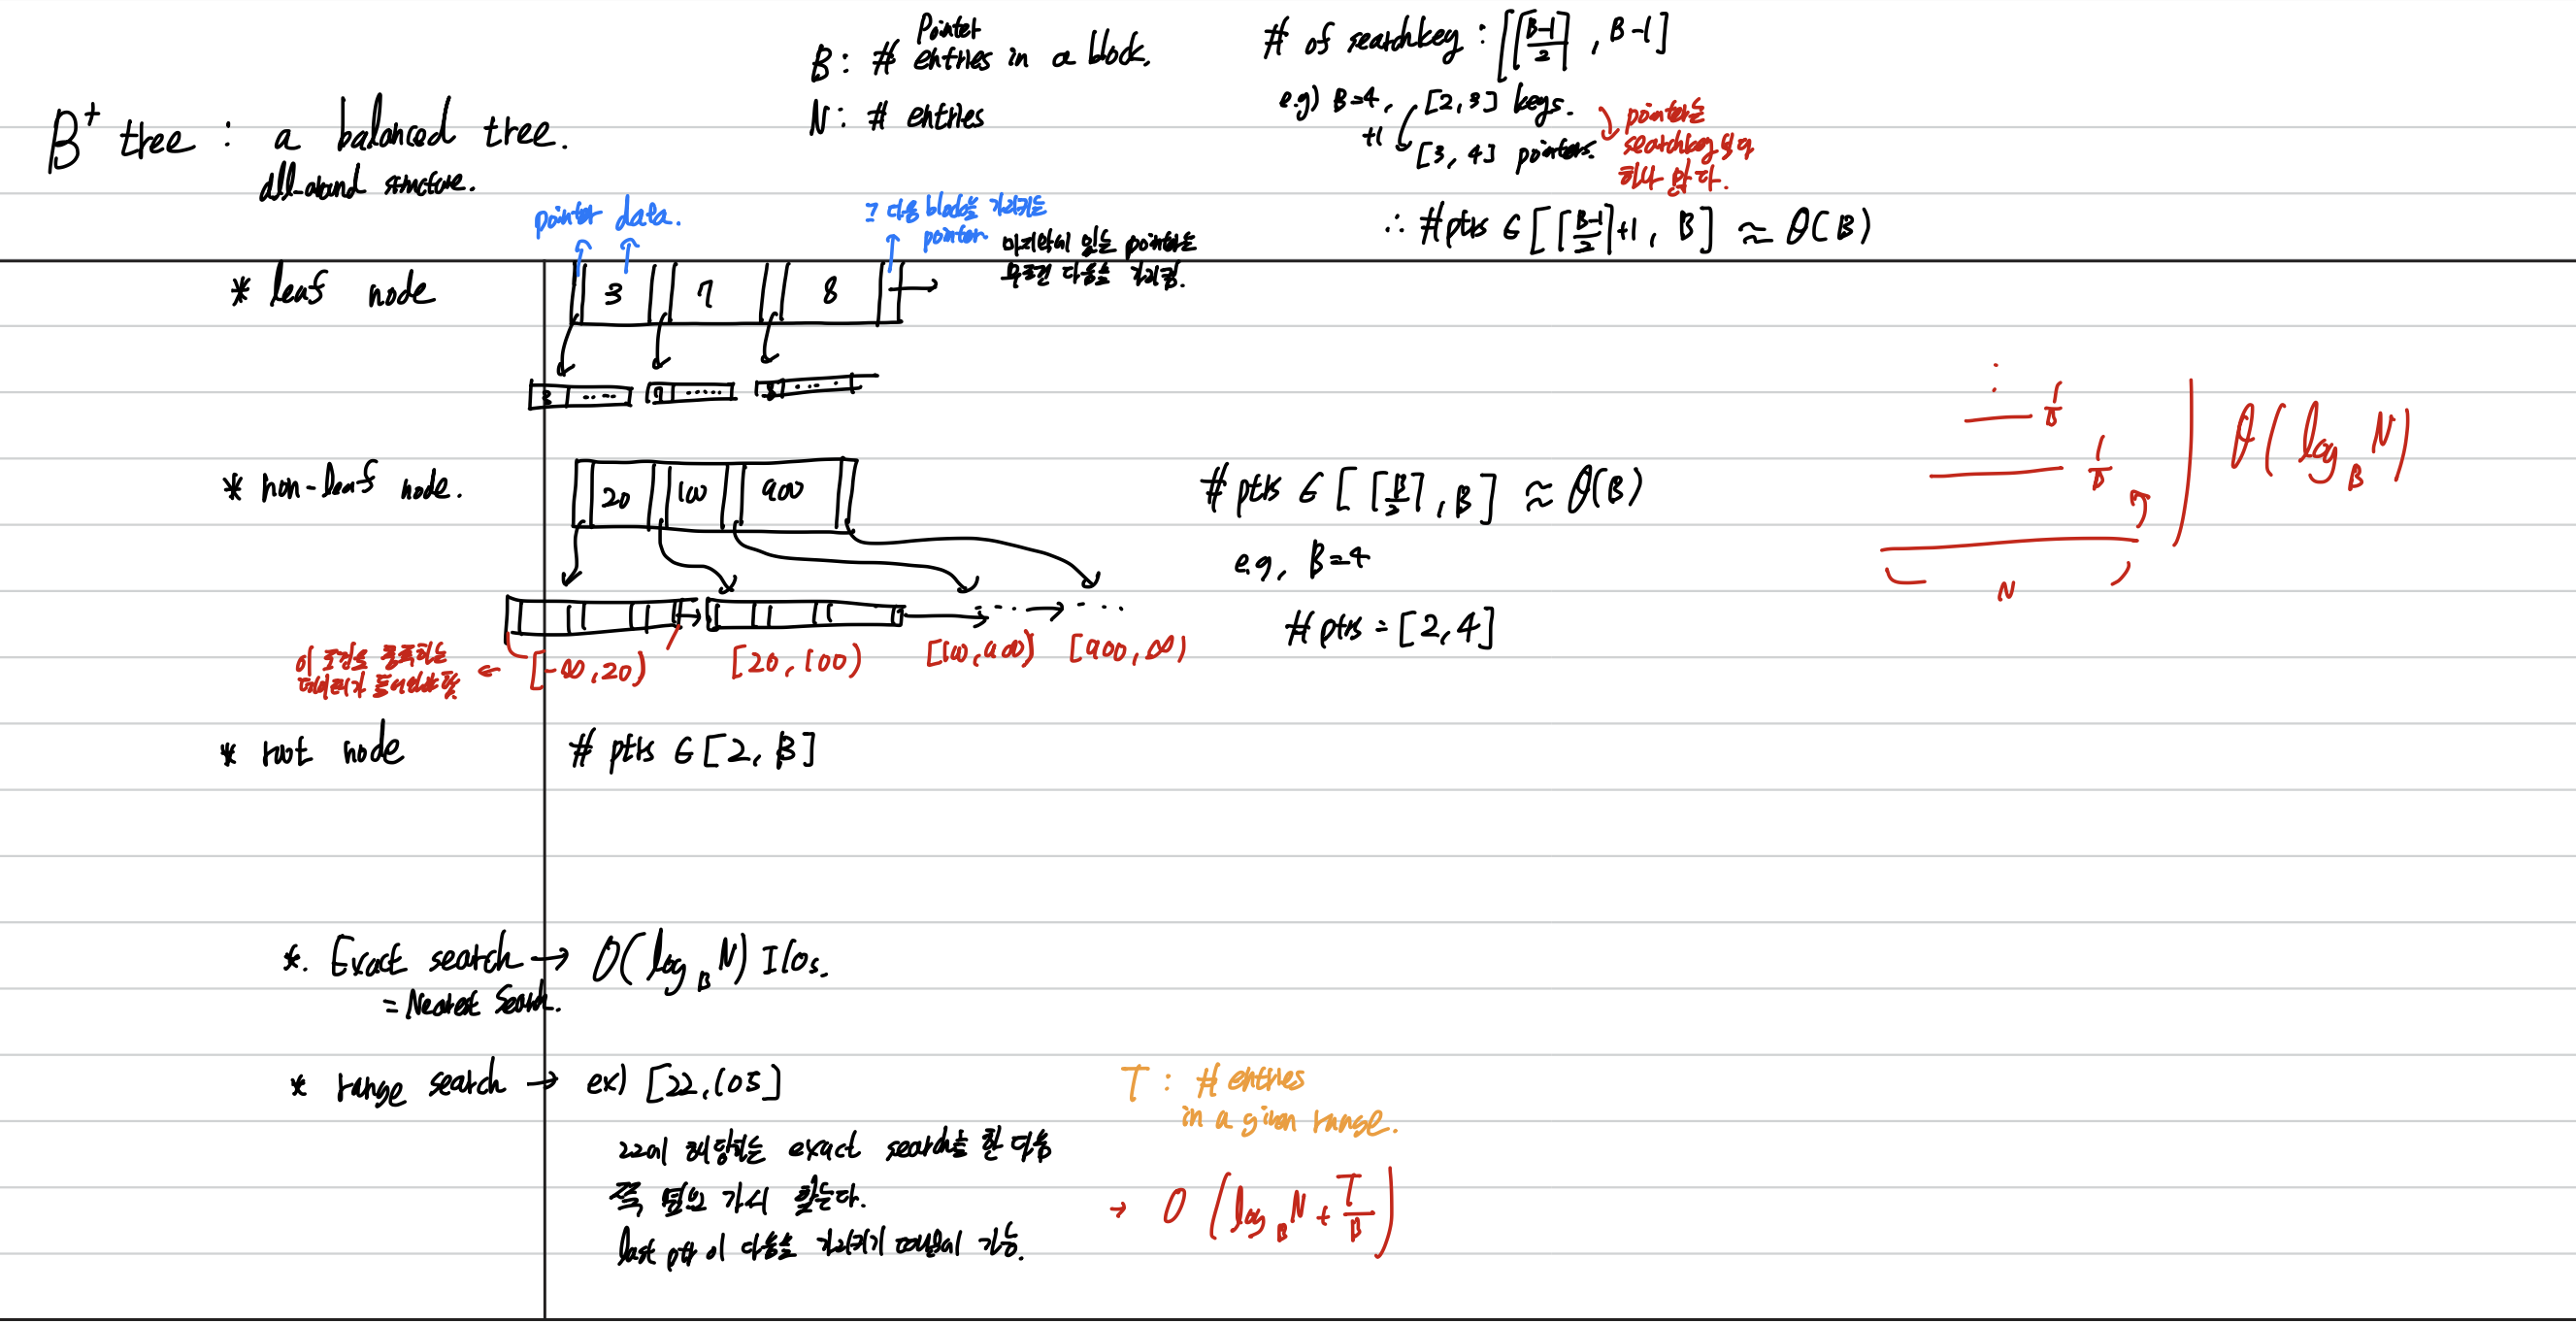 B⁺ tree : a balanced tree.
all-around structure.
B : # Pointer entries in a block.
N : # entries
# of searchkey : [⌈(B-1)/2⌉, B-1]
e.g) B=4, [2, 3] keys.
+1
[3, 4] pointers.
pointer는
searchkey보다
하나 많다.
∴ #ptrs ∈ [⌈(B-1)/2⌉+1, B] ≈ Θ(B)
* leaf node
pointer data.
다음 block을 가리키는
pointer
마지막에 있는 pointer는
무조건 다음을 가리킴.
3 7 8
3 ....
7 .....
8 ....
* non-leaf node.
20 100 900
#ptrs ∈ [⌈B/2⌉, B] ≈ Θ(B)
e.g, B=4
#ptrs = [2, 4]
... → ...
이 조건을 충족하는
데이터가 들어있어야 함.
← [-∞, 20) [20, 100) [100, 900) [900, ∞)
1/B
1/B
N
Θ(log_B N)
* root node
# ptrs ∈ [2, B]
*. Exact search → O(log_B N) I/Os.
= Nearest Search.
* range search → ex) [22, 105]
22에 해당하는 exact search를 한 다음
쭉 옆으로 가서 찾는다.
last ptr이 다음을 가리키기 때문에 가능.
T : # entries
in a given range.
→ O(log_B N + T/B)